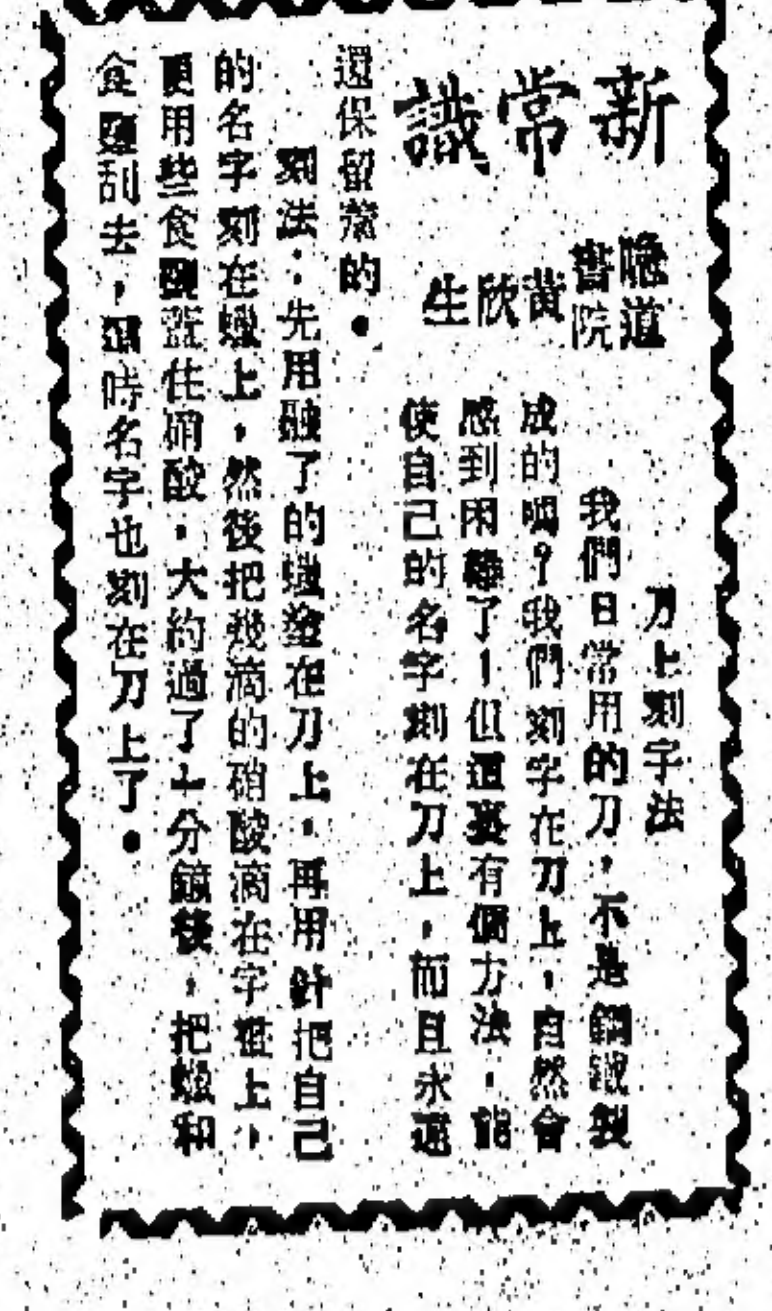 新常識
喚道
書院
黃欣生
刀上刻字法
我們日常用的刀,不是鋼鐵製
成的嗎?我們刻字在刀上,自然會
感到困難了!但這裏有個方法,能
使自己的名字刻在刀上,而且永遠
還保留着的。
刻法:先用融了的蠟塗在刀上,再用針把自己
的名字刻在蠟上,然後把幾滴的硝酸滴在字蹟上,
更用些食鹽蓋住硝酸,大約過了十分鐘後,把蠟和
食鹽刮去,那時名字也刻在刀上了。